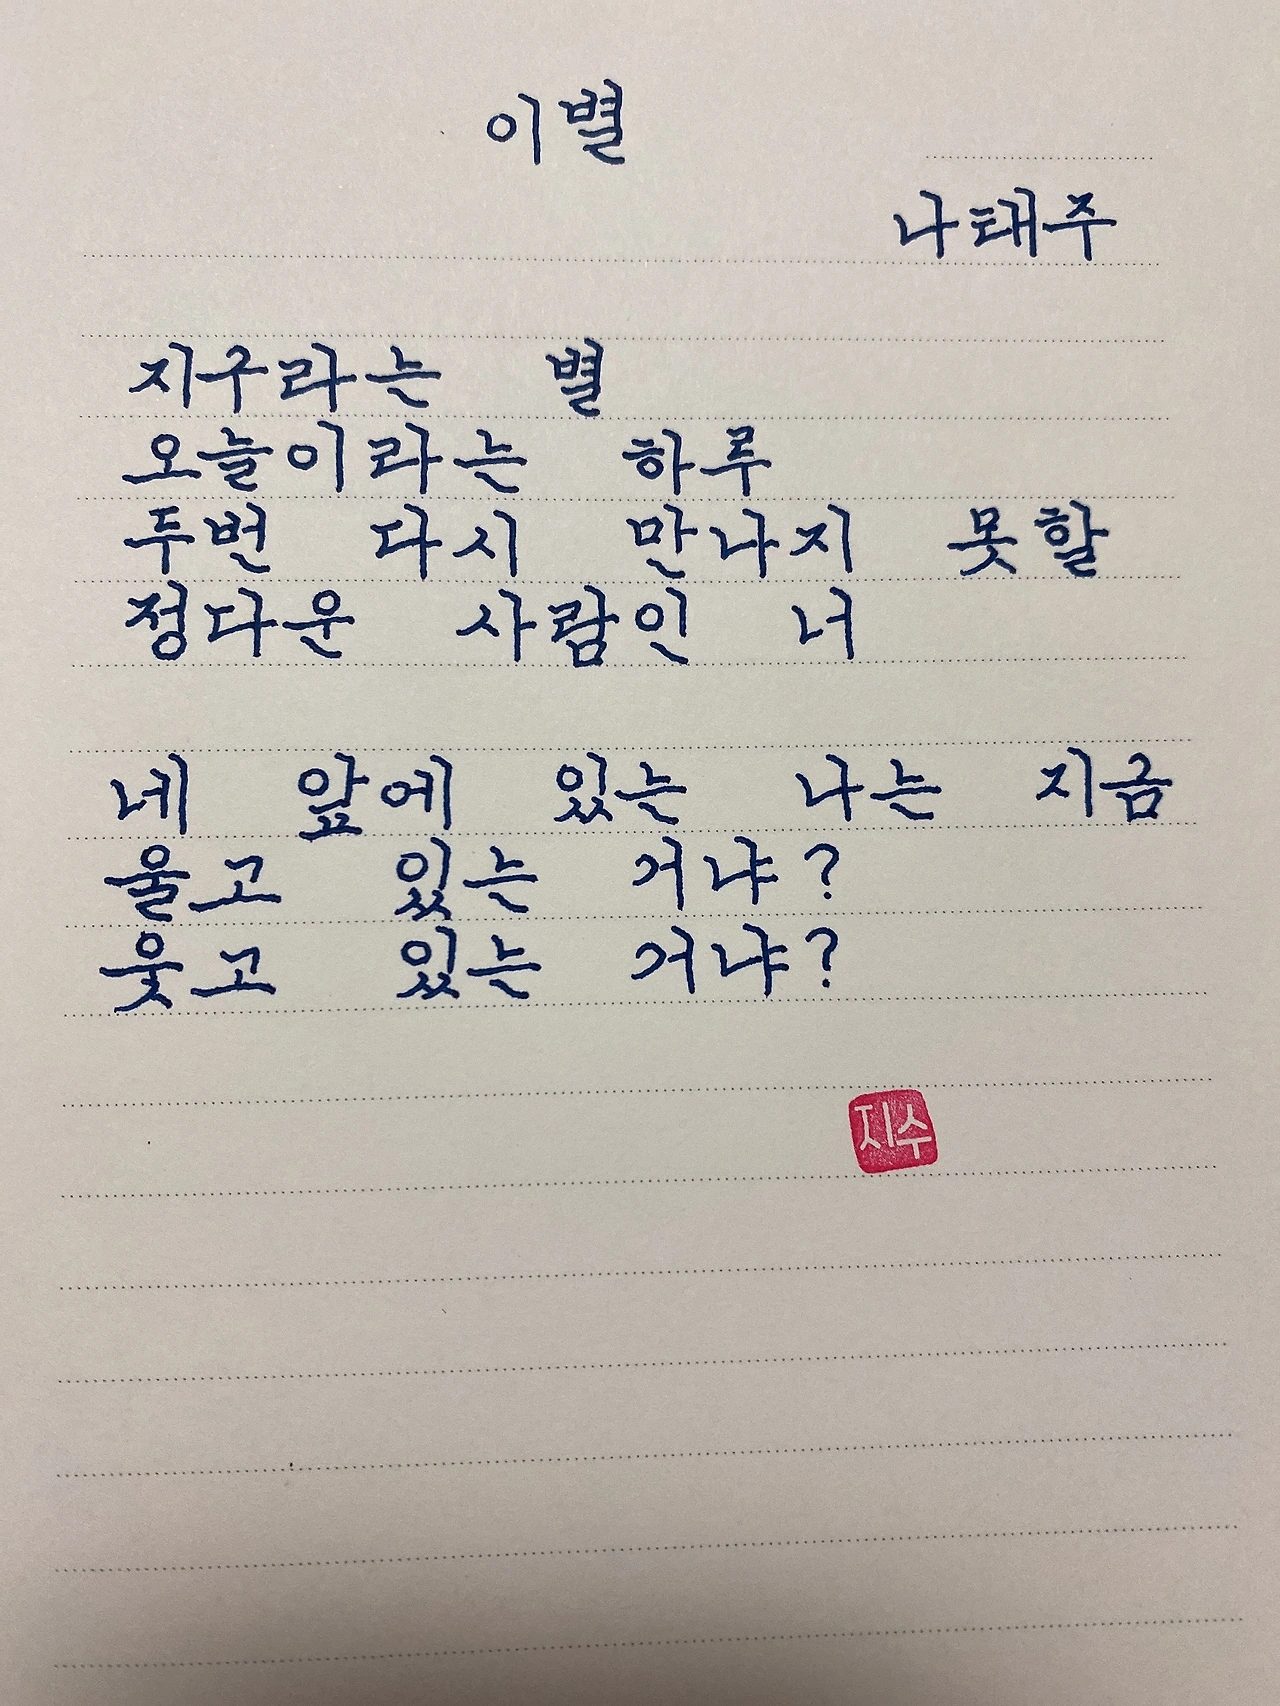 이별
나태주
지구라는 별
오늘이라는 하루
두번 다시 만나지 못할
정다운 사람인 너
네 앞에 있는 나는 지금
울고 있는 거냐?
웃고 있는 거냐?
지수